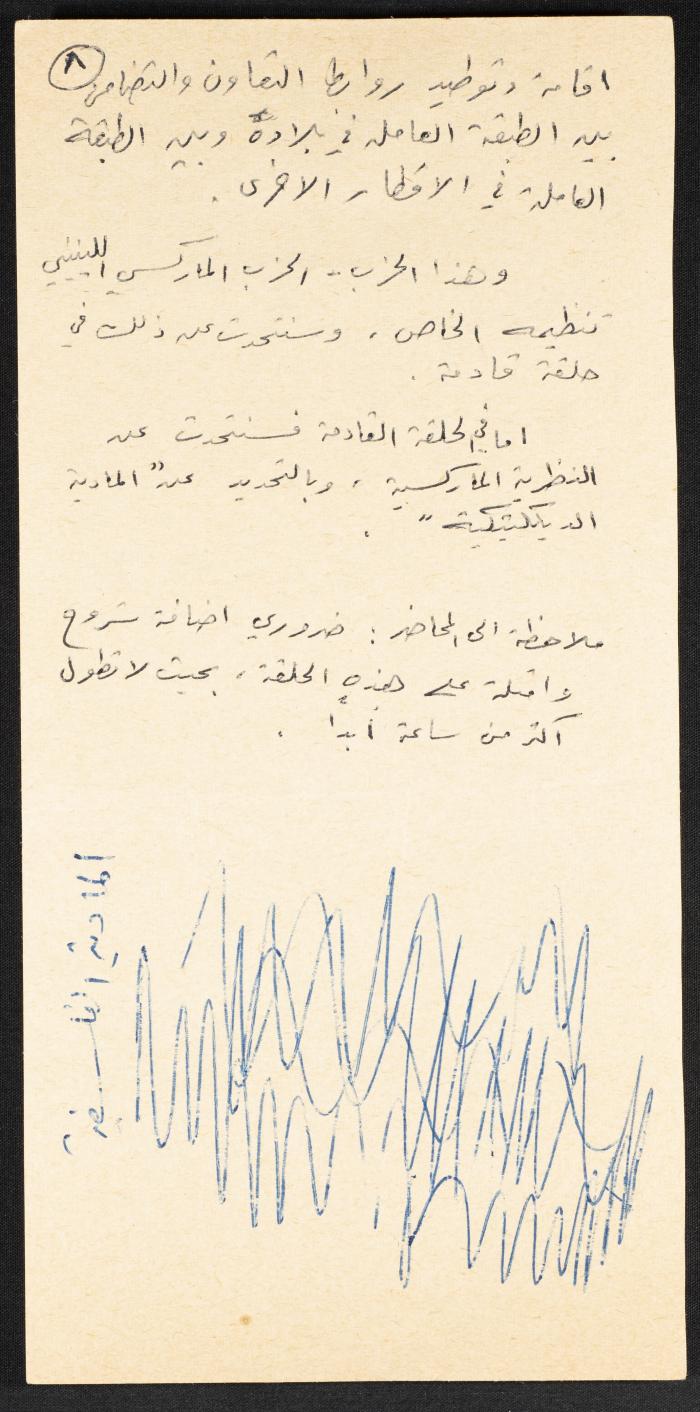 ٨
اقامة وتوطيد روابط التعاون والتضامن
بين الطبقة العاملة في بلاده وبين الطبقة
العاملة في الاقطار الاخرى .
وهذا الحزب - الحزب الماركسي اللينيني
تنظيمه الخاص ، وسنتحدث عن ذلك في
حلقة قادمة .
اما في الحلقة القادمة فسنتحدث عن
النظرية الماركسية ، وبالتحديد عن "المادية
الديالكتيكية" .
ملاحظة الى المحاضر : ضروري اضافة شروح
وامثلة على هذه الحلقة ، بحيث لا تطول
اكثر من ساعة أبداً .
المادية